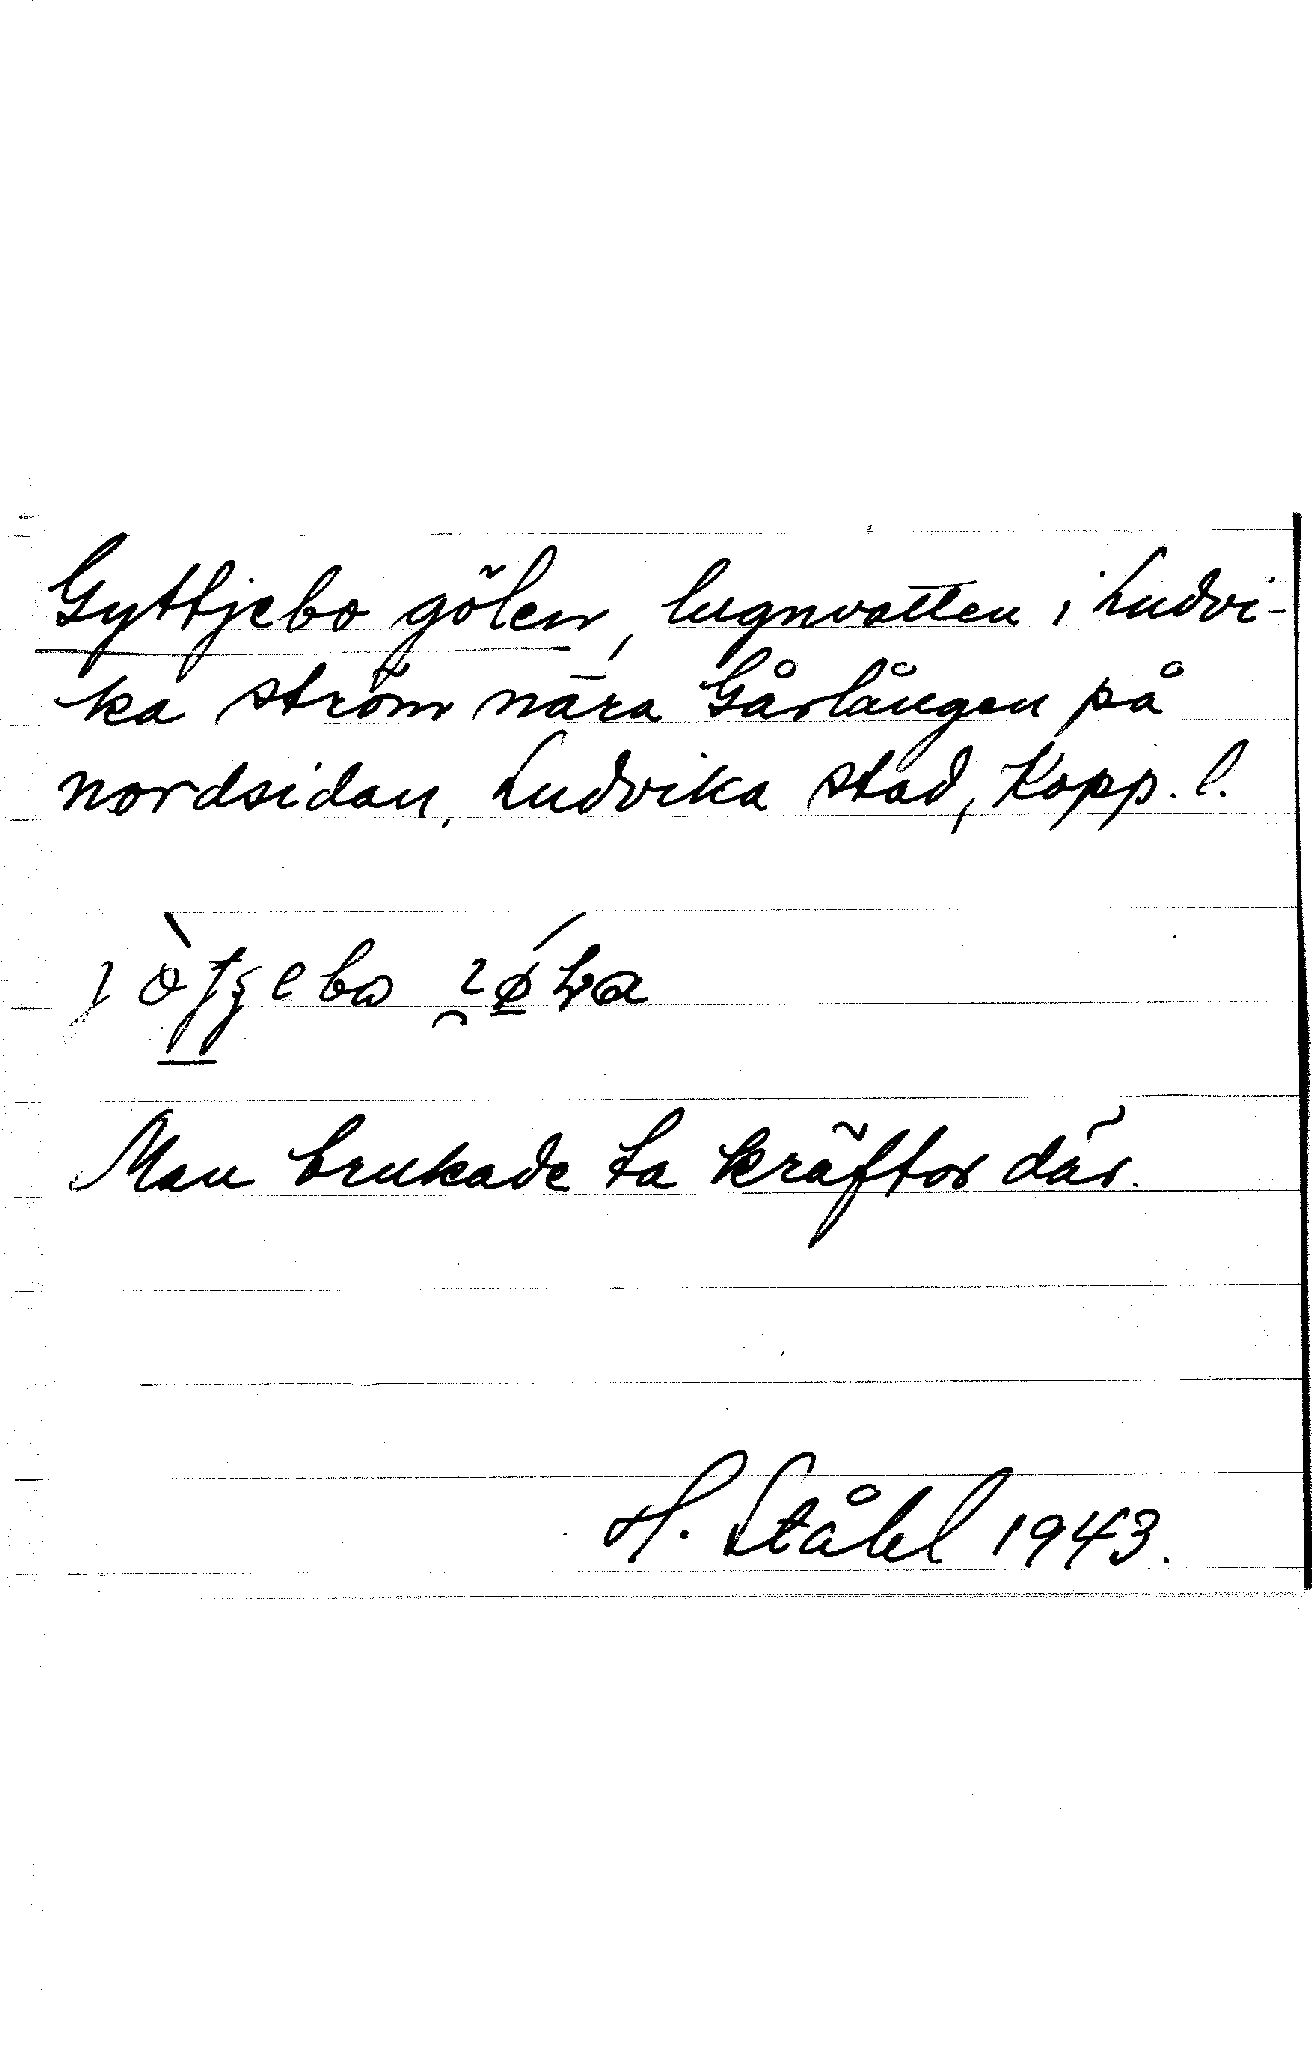 Gyttjebo gölen, lugnvatten i Ludvi-
ka ström nära Gårlången på
nordsidan, Ludvika stad, Kopp. l.
Man brukade ta kräftor där.
H. Ståhl 1943.